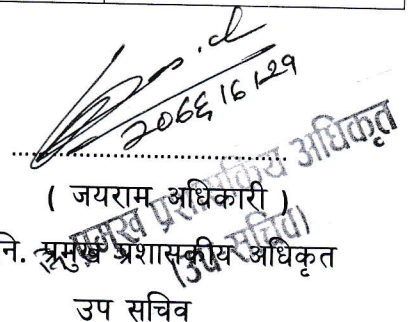 २०६६।६।२९
( जयराम अधिकारी )
नि. प्रमुख प्रशासकीय अधिकृत
उप सचिव
प्रमुख प्रशासकीय अधिकृत
(उप सचिव)